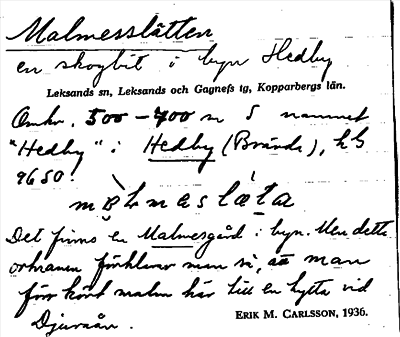 Malmesslätten
en skogbit i byn Hedby
Leksands sn, Leksands och Gagnefs tg, Kopparbergs län.
Omkr. 500-700 m S namnet
"Hedby" i Hedby (Brända), kbl
9650.
Det finns en Malmesgård i byn. Men detta
ortnamn förklarar man så, att man
förr kört malm här till en hytta vid
Djuraån.
ERIK M. CARLSSON, 1936.